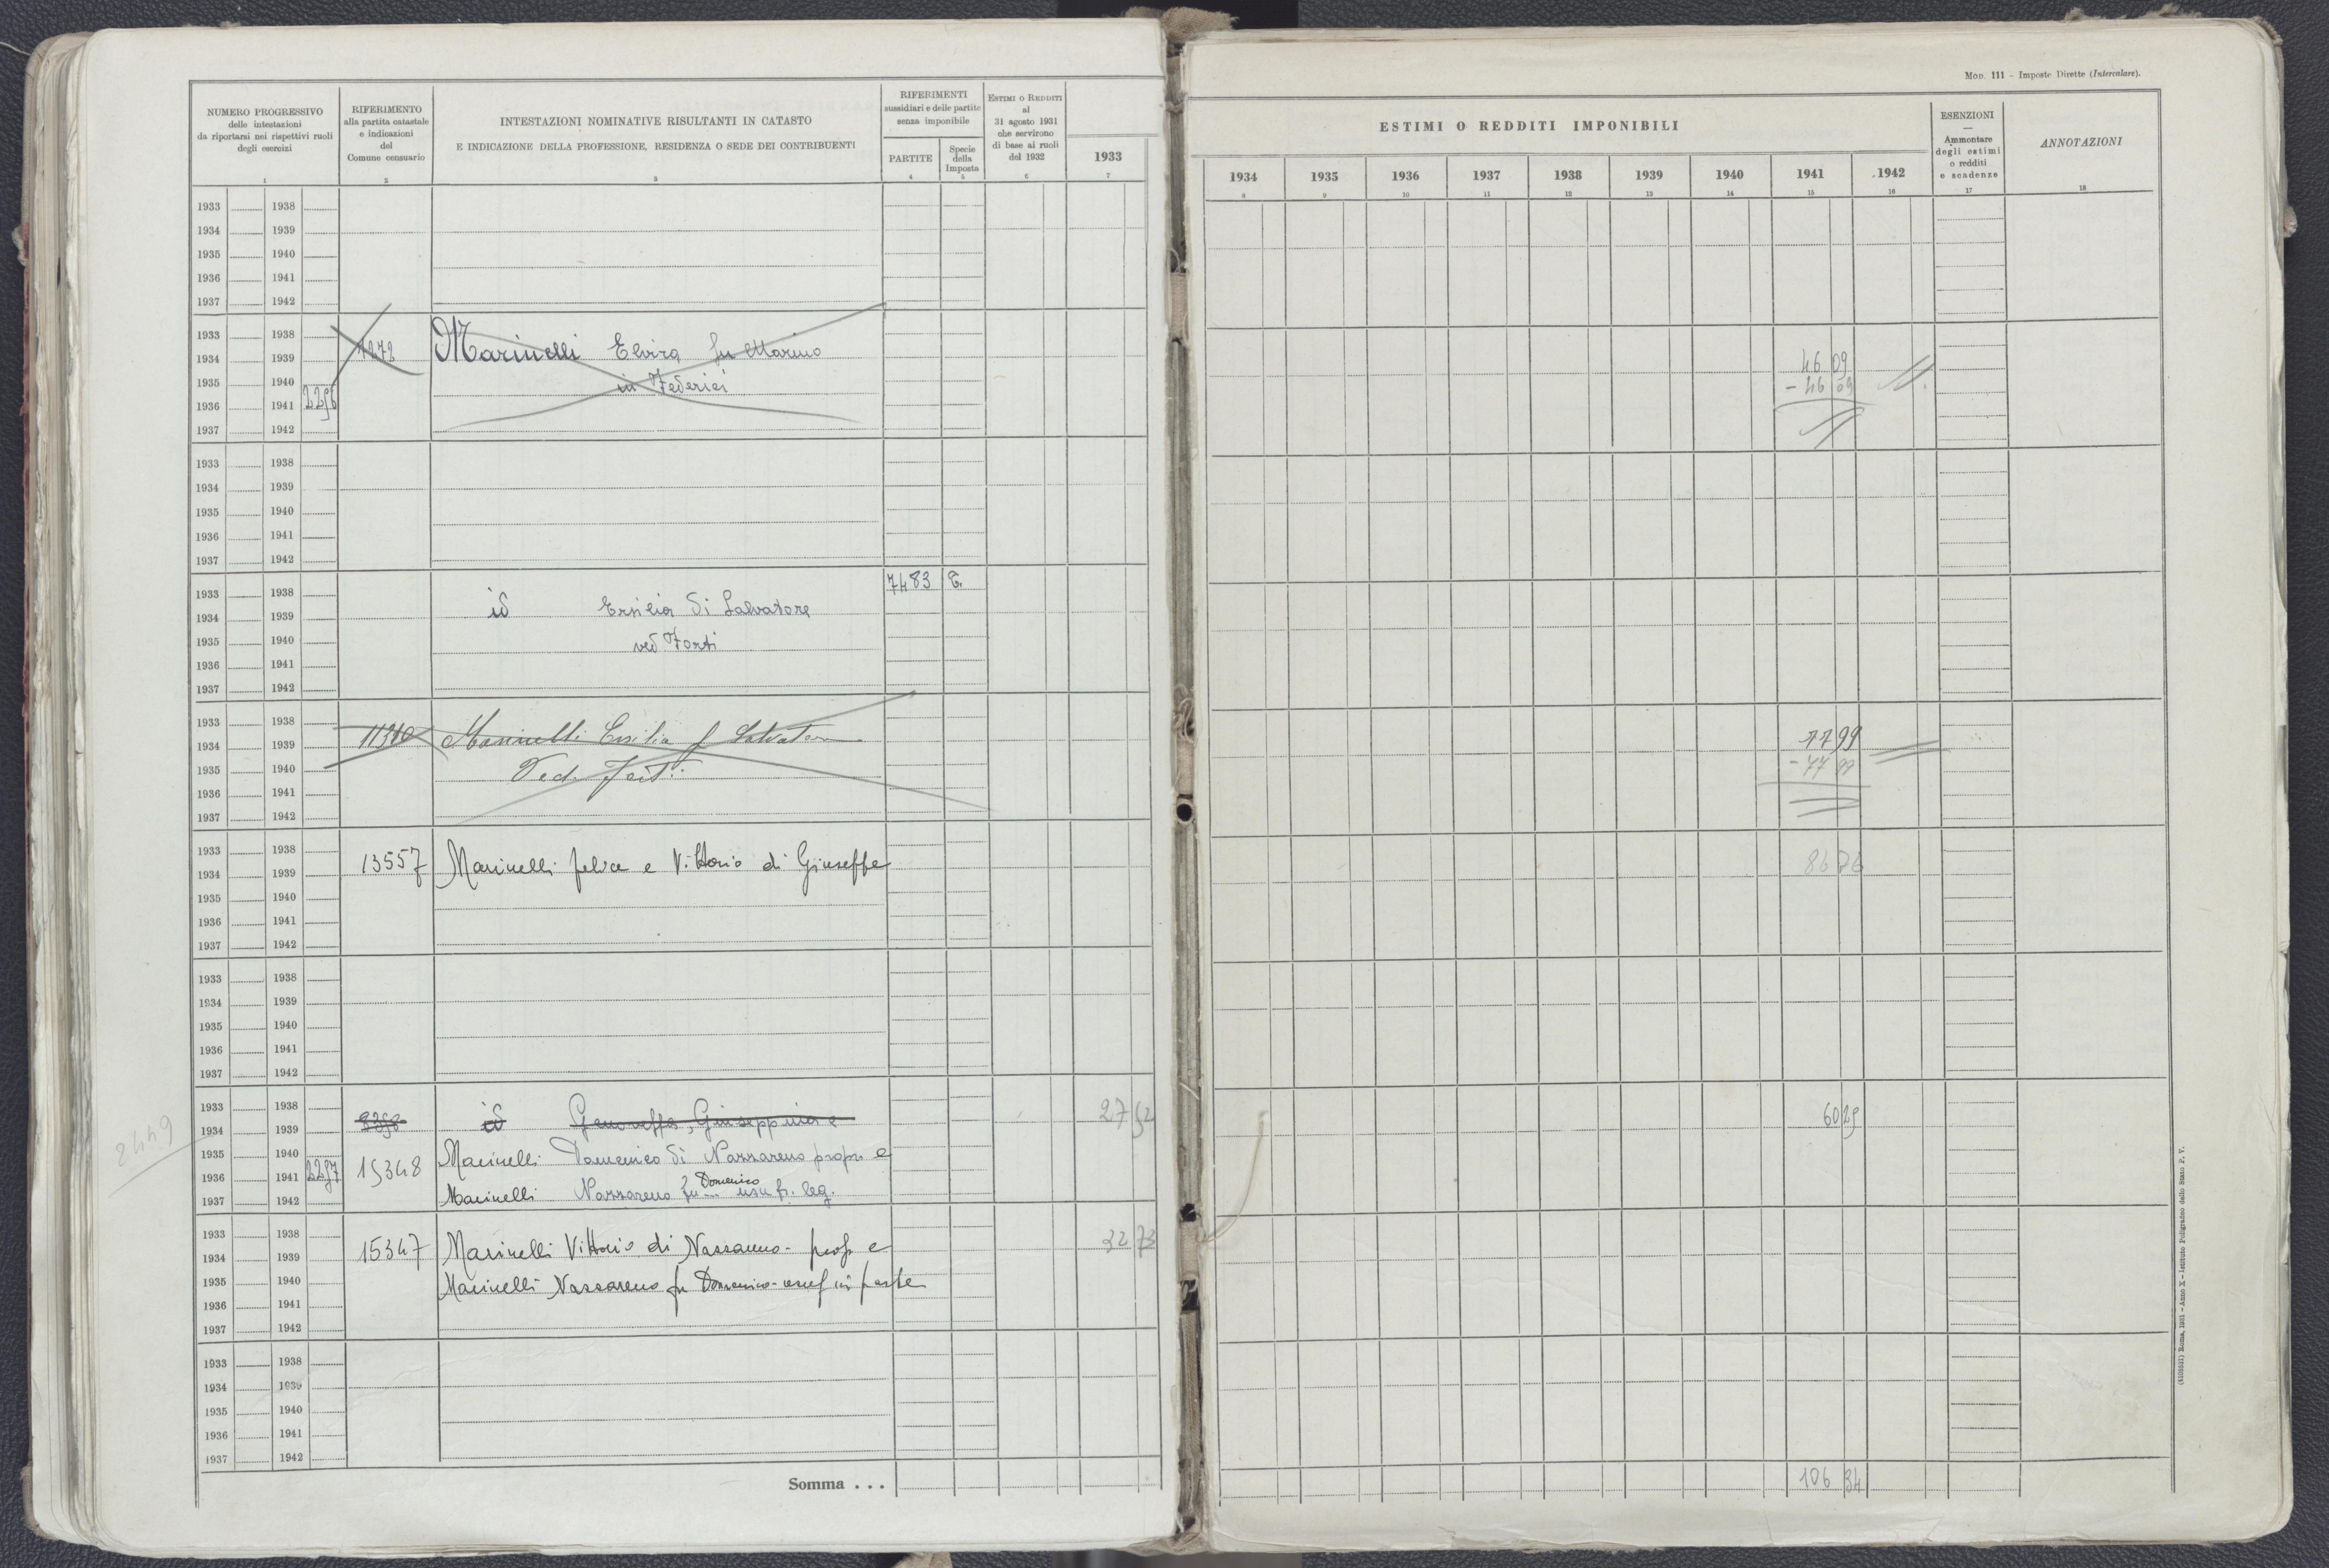 MOD. 111 - Imposte Dirette (Intercalare).
NUMERO PROGRESSIVO
delle intestazioni
da riportarsi nei rispettivi ruoli
degli esercizi
1
RIFERIMENTO
alla partita catastale
e indicazioni
del
Comune censuario
2
INTESTAZIONI NOMINATIVE RISULTANTI IN CATASTO
E INDICAZIONE DELLA PROFESSIONE, RESIDENZA O SEDE DEI CONTRIBUENTI
3
RIFERIMENTI
sussidiari e delle partite
senza imponibile
PARTITE
4
Specie
della
Imposta
5
ESTIMI O REDDITI
al
31 agosto 1931
che servirono
di base ai ruoli
del 1932
6
1933
7
ESTIMI O REDDITI IMPONIBILI
1934 1935 1936 1937 1938 1939 1940 1941 1942
8 9 10 11 12 13 14 15 16
ESENZIONI
—
Ammontare
degli estimi
o redditi
e scadenze
17
ANNOTAZIONI
18
1933 1938
1934 1939
1935 1940
1936 1941
1937 1942
1933 1938
1934 1939 Marinelli Elvira fu Marino 46 09
1935 1940 in Federici - 46 09
1936 1941 2296
1937 1942
1933 1938
1934 1939
1935 1940
1936 1941
1937 1942
7483 T.
1933 1938
1934 1939 id Ersilia di Salvatore
1935 1940 ved Forti
1936 1941
1937 1942
1933 1938
1934 1939 11310 Marinelli Ersilia f Salvatore 77 99
1935 1940 Ved. Forti - 77 99
1936 1941
1937 1942
1933 1938
1934 1939 13557 Marinelli Felice e Vittorio di Giuseppe 86 76
1935 1940
1936 1941
1937 1942
1933 1938
1934 1939
1935 1940
1936 1941
1937 1942
1933 1938
1934 1939 id Genoveffa, Giuseppina e 27 52 60 29
2449
1935 1940 Marinelli Domenico di Nazzareno propr e
1936 1941 2297 15348
1937 1942 Marinelli Nazzareno fu Domenico usufr. leg.
1933 1938
1934 1939 15347 Marinelli Vittorio di Nazzareno - propr e 32 73
1935 1940 Marinelli Nazzareno fu Domenico - usuf in parte
1936 1941
1937 1942
1933 1938
1934 1939
1935 1940
1936 1941
1937 1942
Somma . . . 106 34
(5108631) Roma, 1931 - Anno X - Istituto Poligrafico dello Stato P. V.